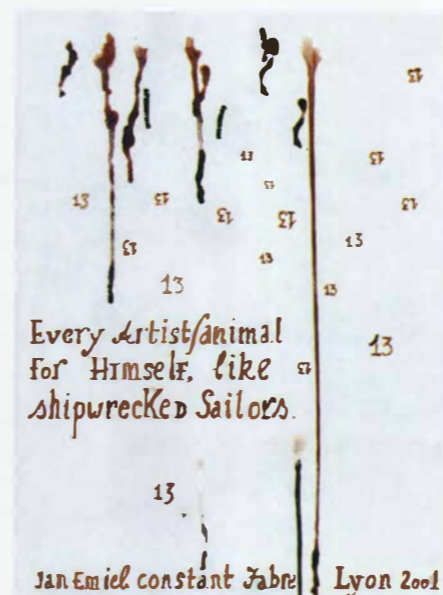 13
13
13
13
13
13
13
13
13
13
13
13
13
13
Every Artist/animal
13
For Himself, like
13
shipwrecKed Sailors.
13
Jan Emiel constant Fabre Lyon 2001